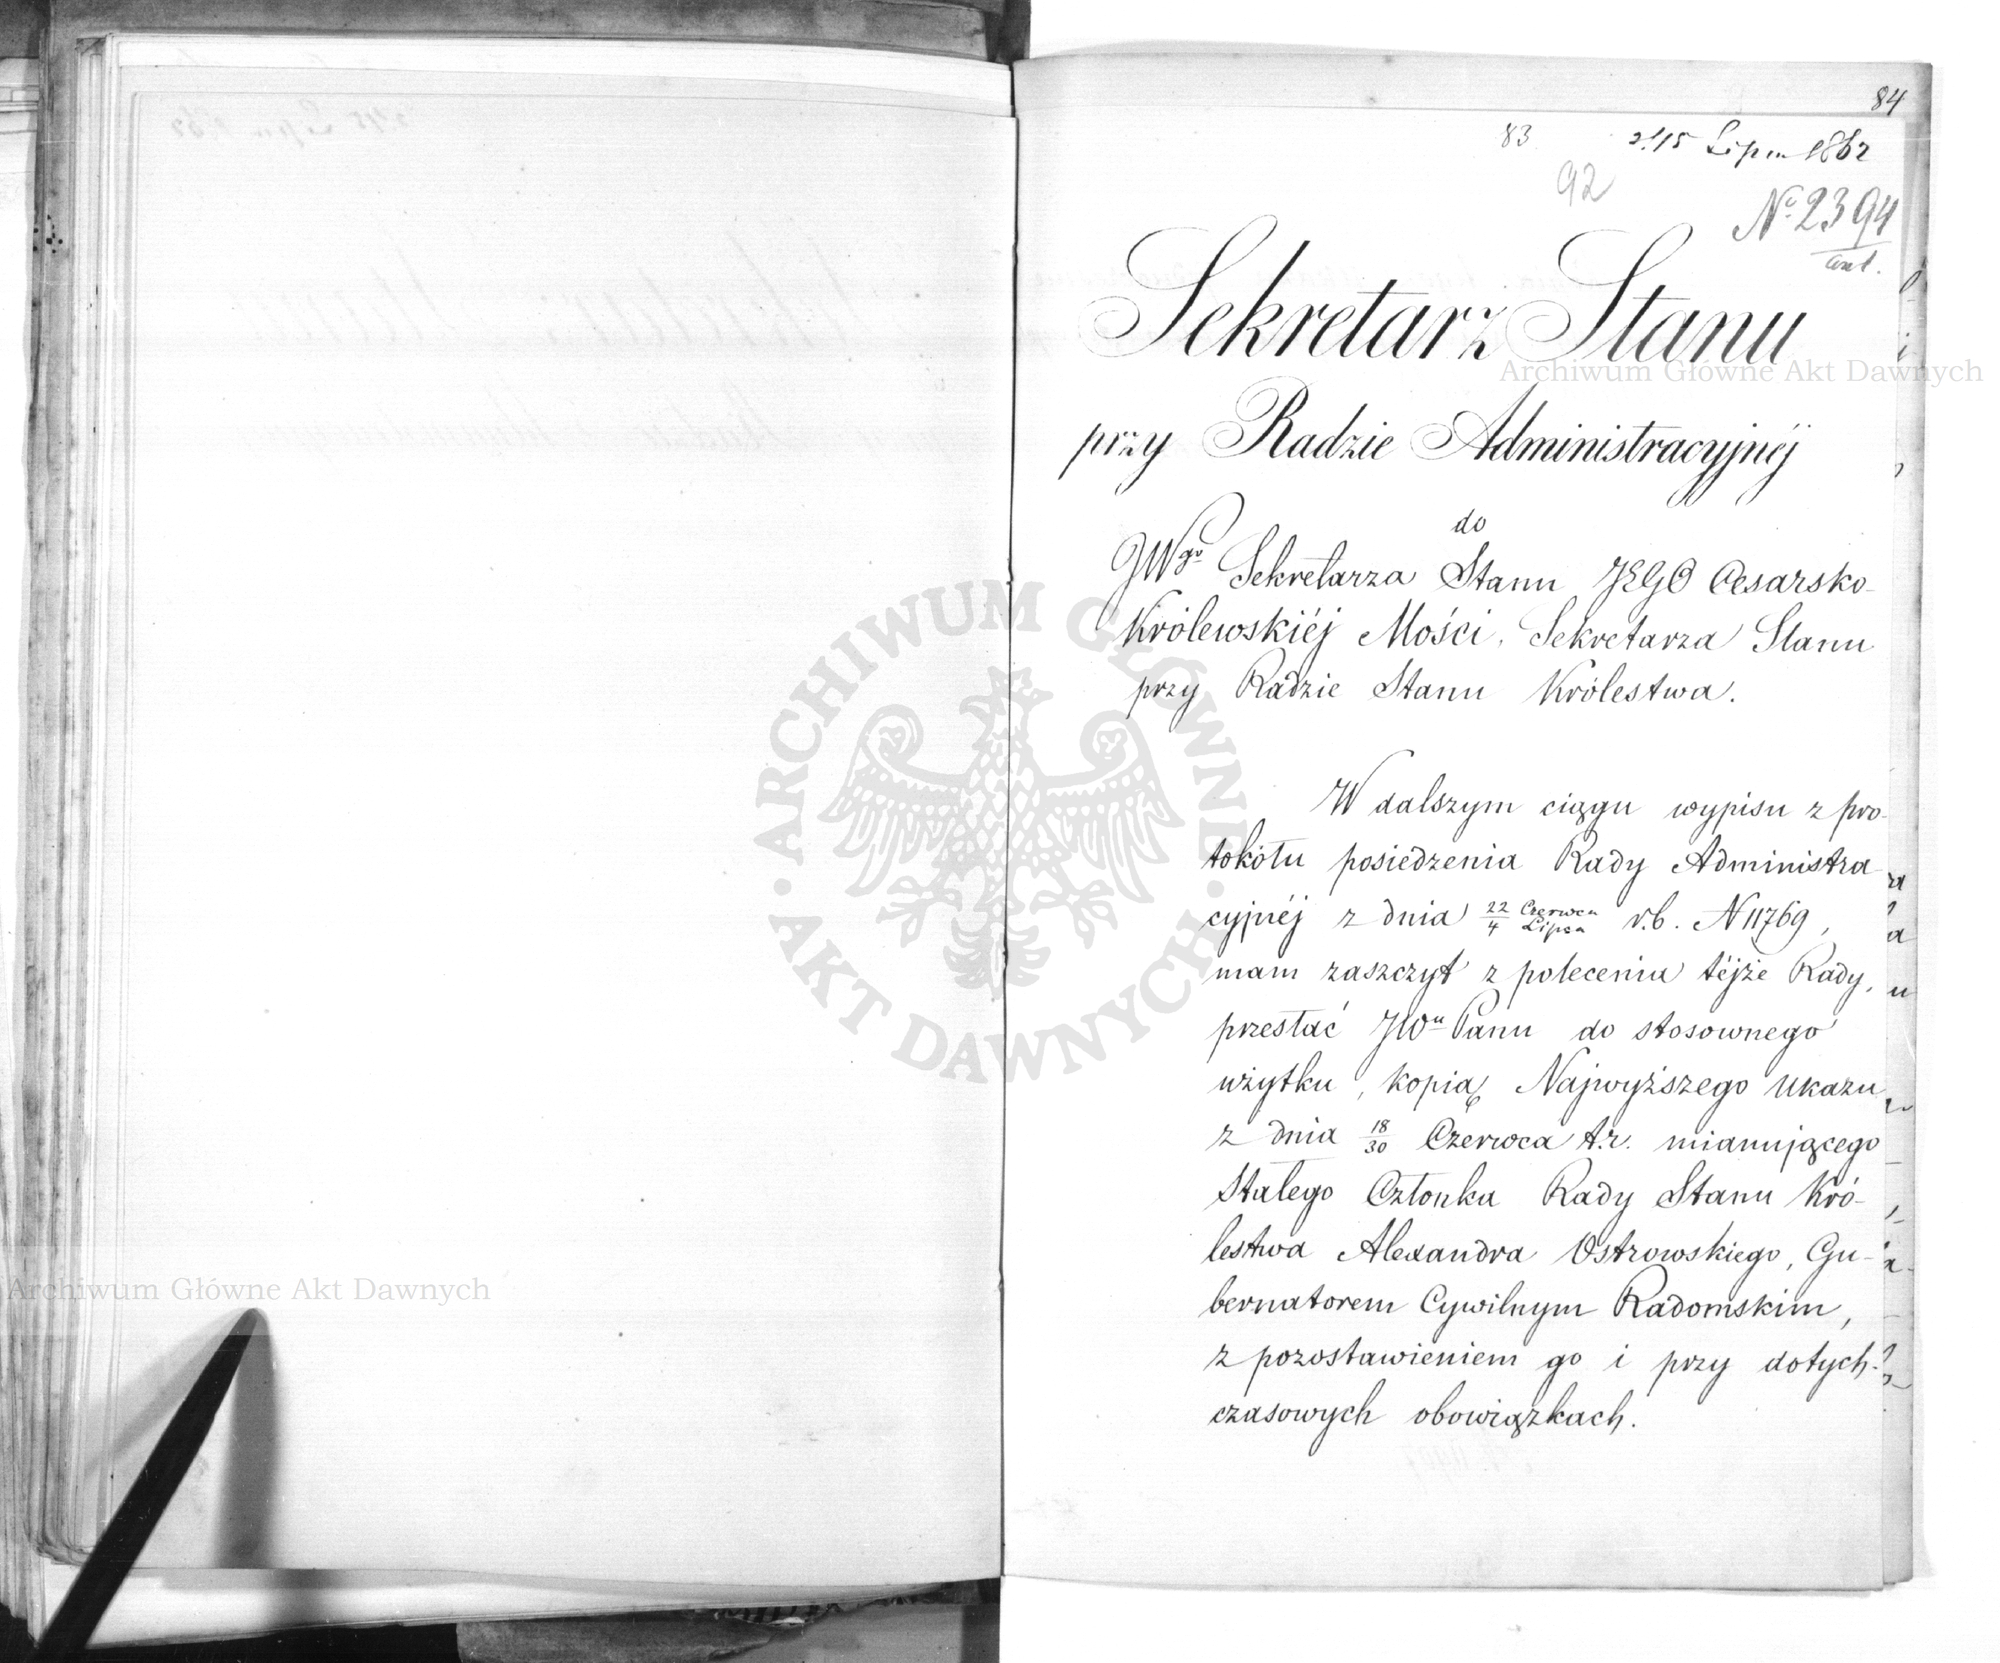 84
83
d. 15 Lipca 1862
92
No 2394
Sekretarz Stanu
przy Radzie Administracyjnéj
do
JWgo Sekretarza Stanu JEGO Cesarsko-
Królewskiéj Mości, Sekretarza Stanu
przy Radzie Stanu Królestwa.
W dalszym ciągu wypisu z pro-
tokółu posiedzenia Rady Administra-
cyjnéj z dnia 22 Czerwca / 4 Lipca r.b. N 11769,
mam zaszczyt z polecenia téjże Rady,
przesłać JWu Panu do stosownego
użytku, kopią Najwyższego Ukazu
z dnia 18/30 Czerwca t.r. mianującego
Stałego Członka Rady Stanu Kró-
lestwa Alexandra Ostrowskiego, Gu-
bernatorem Cywilnym Radomskim,
z pozostawieniem go i przy dotych-
czasowych obowiązkach.
Archiwum Główne Akt Dawnych
Archiwum Główne Akt Dawnych
ARCHIWUM GŁÓWNE · AKT DAWNYCH ·